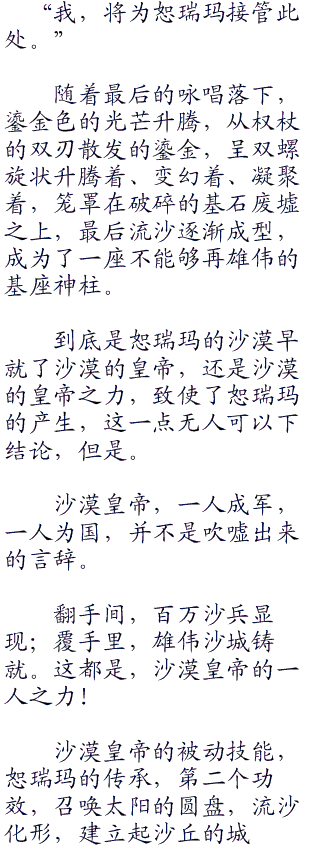 “我，将为恕瑞玛接管此
处。”
随着最后的咏唱落下，
鎏金色的光芒升腾，从权杖
的双刃散发的鎏金，呈双螺
旋状升腾着、变幻着、凝聚
着，笼罩在破碎的基石废墟
之上，最后流沙逐渐成型，
成为了一座不能够再雄伟的
基座神柱。
到底是恕瑞玛的沙漠早
就了沙漠的皇帝，还是沙漠
的皇帝之力，致使了恕瑞玛
的产生，这一点无人可以下
结论，但是。
沙漠皇帝，一人成军，
一人为国，并不是吹嘘出来
的言辞。
翻手间，百万沙兵显
现；覆手里，雄伟沙城铸
就。这都是，沙漠皇帝的一
人之力！
沙漠皇帝的被动技能，
恕瑞玛的传承，第二个功
效，召唤太阳的圆盘，流沙
化形，建立起沙丘的城